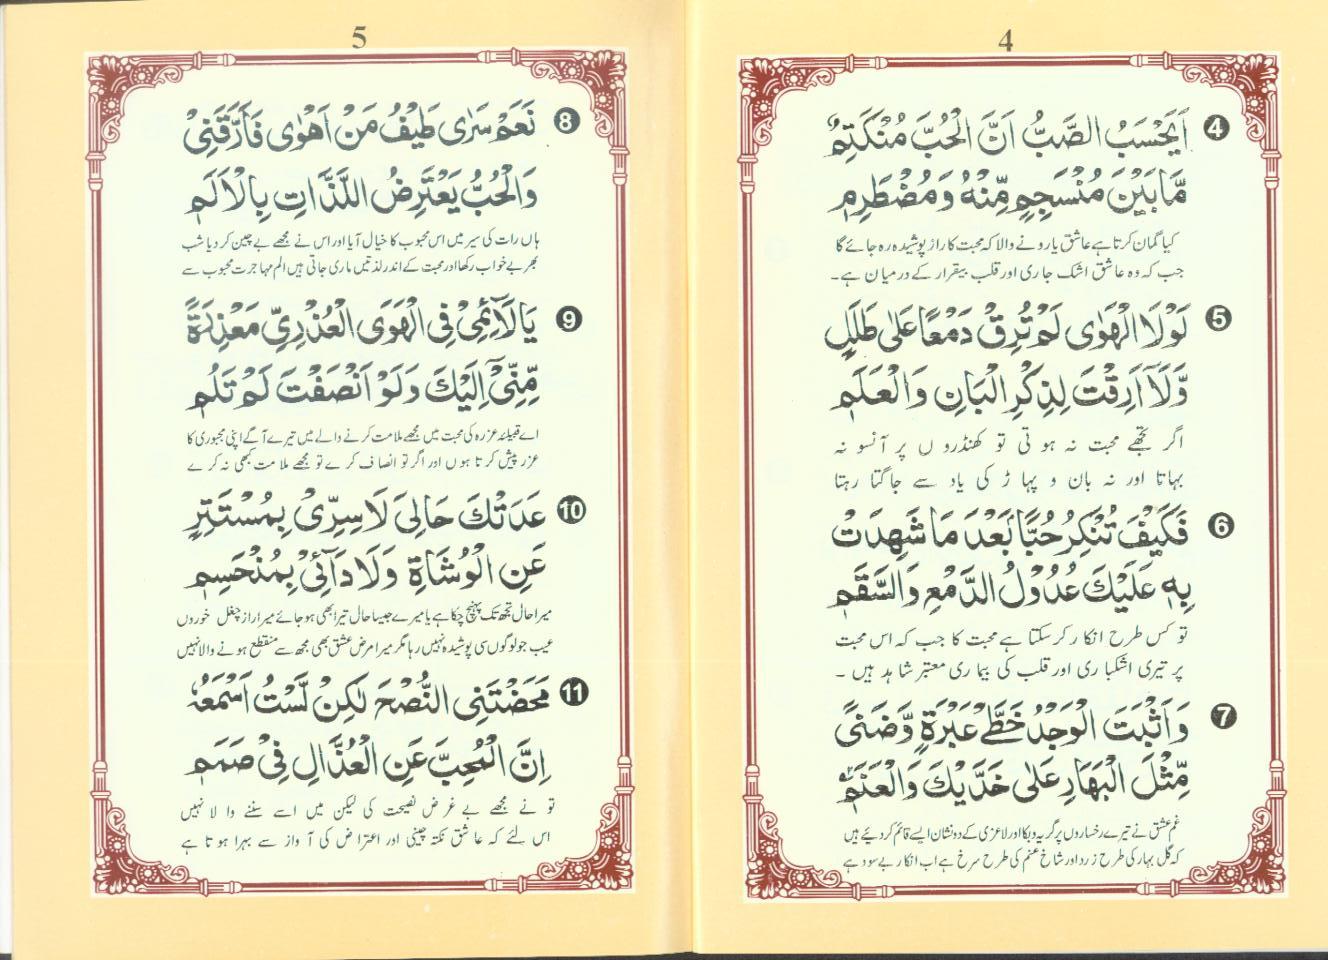 4
4 اَيَحْسَبُ الصَّبُّ اَنَّ الْحُبَّ مُنْكَتِمٌ
مَّا بَيْنَ مُنْسَجِمٍ مِّنْهُ وَمُضْطَرِمٖ
کیا گمان کرتا ہے عاشق یا رونے والا کہ محبت کا راز پوشیدہ رہ جائے گا
جب کہ وہ عاشق اشک جاری اور قلب بیقرار کے درمیان ہے۔
5 لَوْلَا الْهَوٰى لَمْ تُرِقْ دَمْعًا عَلٰى طَلَلٍ
وَّلَآ اَرِقْتَ لِذِكْرِ الْبَانِ وَالْعَلَمٖ
اگر تجھے محبت نہ ہوتی تو کھنڈروں پر آنسو نہ
بہاتا اور نہ بان و پہاڑ کی یاد سے جاگتا رہتا
6 فَكَيْفَ تُنْكِرُ حُبًّا بَعْدَ مَا شَهِدَتْ
بِهٖ عَلَيْكَ عُدُوْلُ الدَّمْعِ وَالسَّقَمٖ
تو کس طرح انکار کر سکتا ہے محبت کا جب کہ اس محبت
پر تیری اشکباری اور قلب کی بیماری معتبر شاہد ہیں ۔
7 وَاَثْبَتَ الْوَجْدُ خَطَّےْ عَبْرَةٍ وَّضَنًى
مِّثْلَ الْبَهَارِ عَلٰى خَدَّيْكَ وَالْعَنَمٖ
غم عشق نے تیرے رخساروں پر گریہ و بکا اور لاغری کے دو نشان ایسے قائم کر دیئے ہیں
کہ گل بہار کی طرح زرد اور شاخ عنم کی طرح سرخ ہے اب انکار بے سود ہے
5
8 نَعَمْ سَرٰى طَيْفُ مَنْ اَهْوٰى فَاَرَّقَنِىْ
وَالْحُبُّ يَعْتَرِضُ اللَّذَّاتِ بِالْاَلَمٖ
ہاں رات کی سیر میں اس محبوب کا خیال آیا اور اس نے مجھے بے چین کر دیا شب
بھر بے خواب رکھا اور محبت کے اندر لذتیں ماری جاتی ہیں الم مہاجرت محبوب سے
9 يَا لَآئِمِىْ فِى الْهَوَى الْعُذْرِيِّ مَعْذِرَةً
مِّنِّىْٓ اِلَيْكَ وَلَوْ اَنْصَفْتَ لَمْ تَلُمٖ
اے قبیلند عزرہ کی محبت میں مجھے ملامت کرنے والے میں تیرے آگے اپنی مجبوری کا
عزر پیش کرتا ہوں اور اگر تو انصاف کرے تو مجھے ملامت کبھی نہ کرے
10 عَدَتْكَ حَالِىَ لَا سِرِّىْ بِمُسْتَتِرٍ
عَنِ الْوُشَاةِ وَلَا دَآئِىْ بِمُنْحَسِمٖ
میرا حال تجھ تک پہنچ چکا ہے یا میرے جیسا حال تیرا بھی ہو جائے میرا راز چغل خوروں
عیب جو لوگوں سی پوشیدہ نہیں رہا مگر میرا مرض عشق بھی مجھ سے منقطع ہونے والا نہیں
11 مَحَضْتَنِى النُّصْحَ لٰكِنْ لَّسْتُ اَسْمَعُهٗ
اِنَّ الْمُحِبَّ عَنِ الْعُذَّالِ فِىْ صَمَمٖ
تو نے مجھے بے غرض نصیحت کی لیکن میں اسے سننے والا نہیں
اس لئے کہ عاشق نکتہ چینی اور اعتراض کی آواز سے بہرا ہوتا ہے